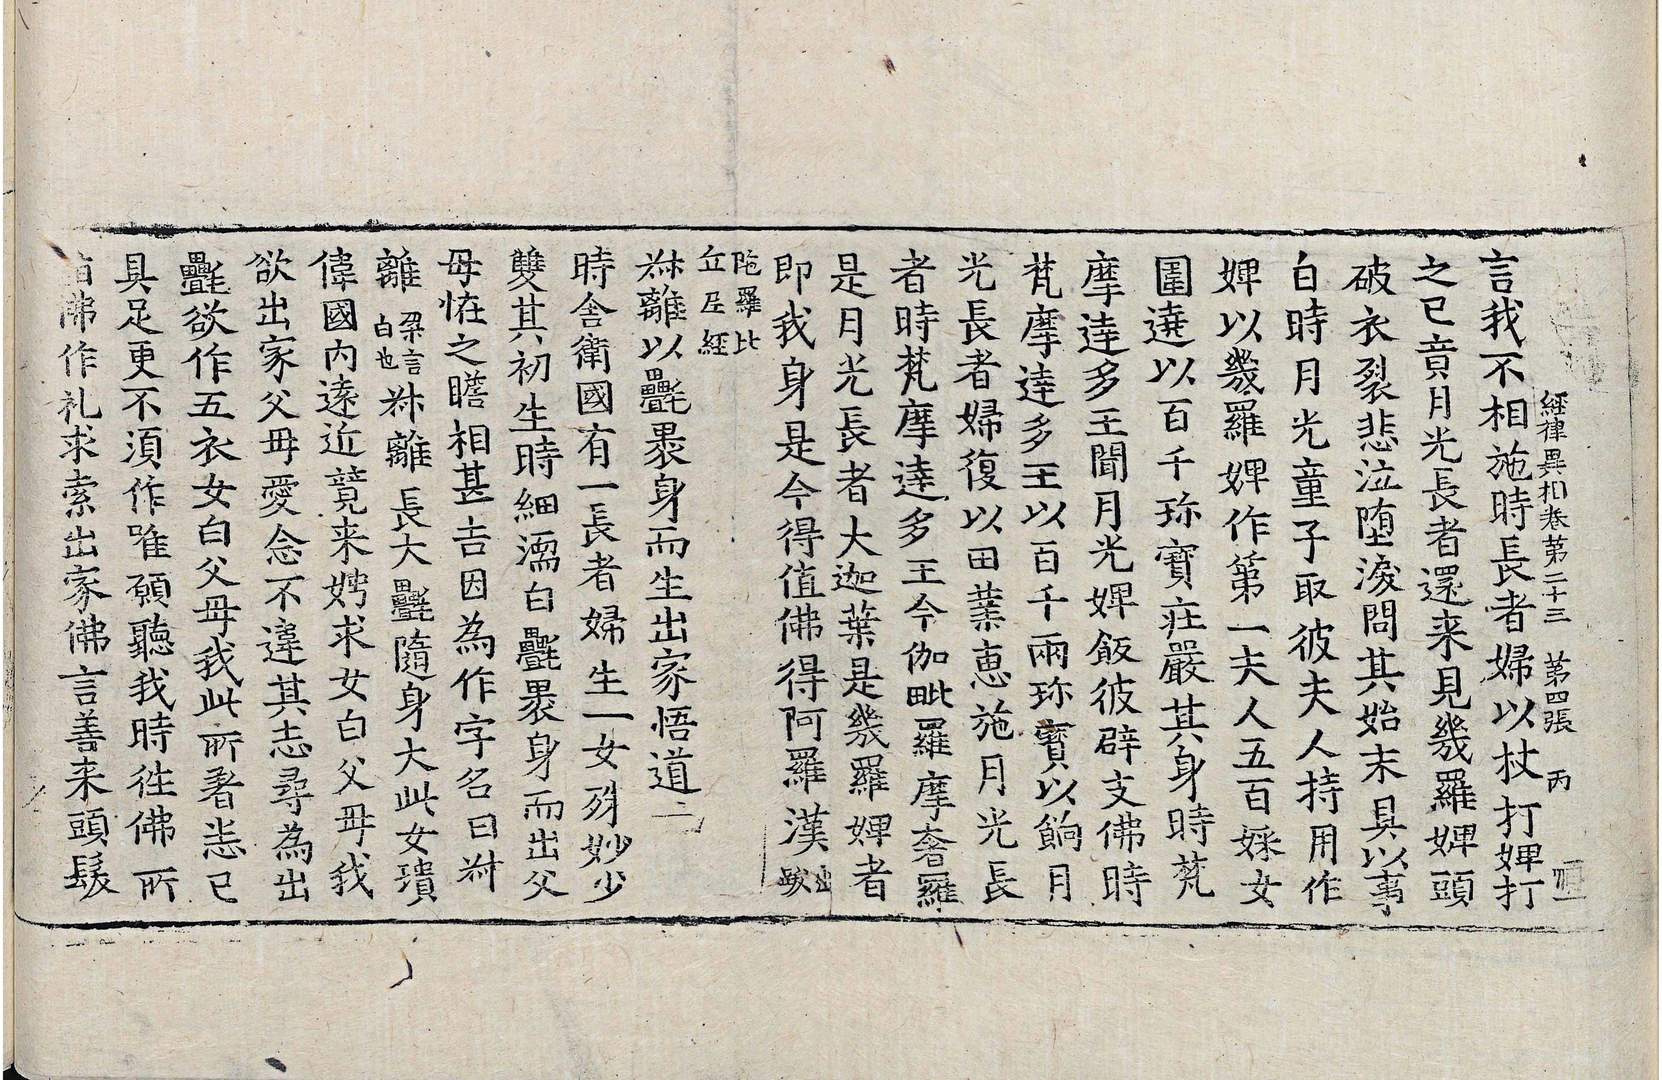 經律異相卷第二十三　第四張　丙
言我不相施時長者婦以杖打婢打
之已竟月光長者還来見幾羅婢頭
破衣裂悲泣堕淚問其始末具以事
白時月光童子取彼夫人持用作
婢以幾羅婢婢作第一夫人五百婇女
圍遶以百千珎寶莊嚴其身時梵
摩達多王聞月光婢飯彼辟支佛時
梵摩達多王以百千兩珎寶以餉月
光長者婦復以田業恵施月光長
者時梵摩達多王今伽毗羅摩奢羅
是月光長者大迦葉是幾羅婢者
即我身是今得值佛得阿羅漢出跋
陁羅比
丘尼經
𣁽離以氎褁身而生出家悟道二
時舍衛國有一長者婦生一女殊妙少
雙其初生時細濡白氎褁身而出父
母恠之瞻相甚吉因為作字名曰𣁽
離梁言白也𣁽離長大氎隨身大此女瓌
偉國内逺近競来娉求女白父母我
欲出家父母愛念不違其志尋為出
氎欲作五衣女白父母我此所著恙已
具足更不湏作唯願聽我時徃佛所
前佛作礼求索出家佛言善来頭髮